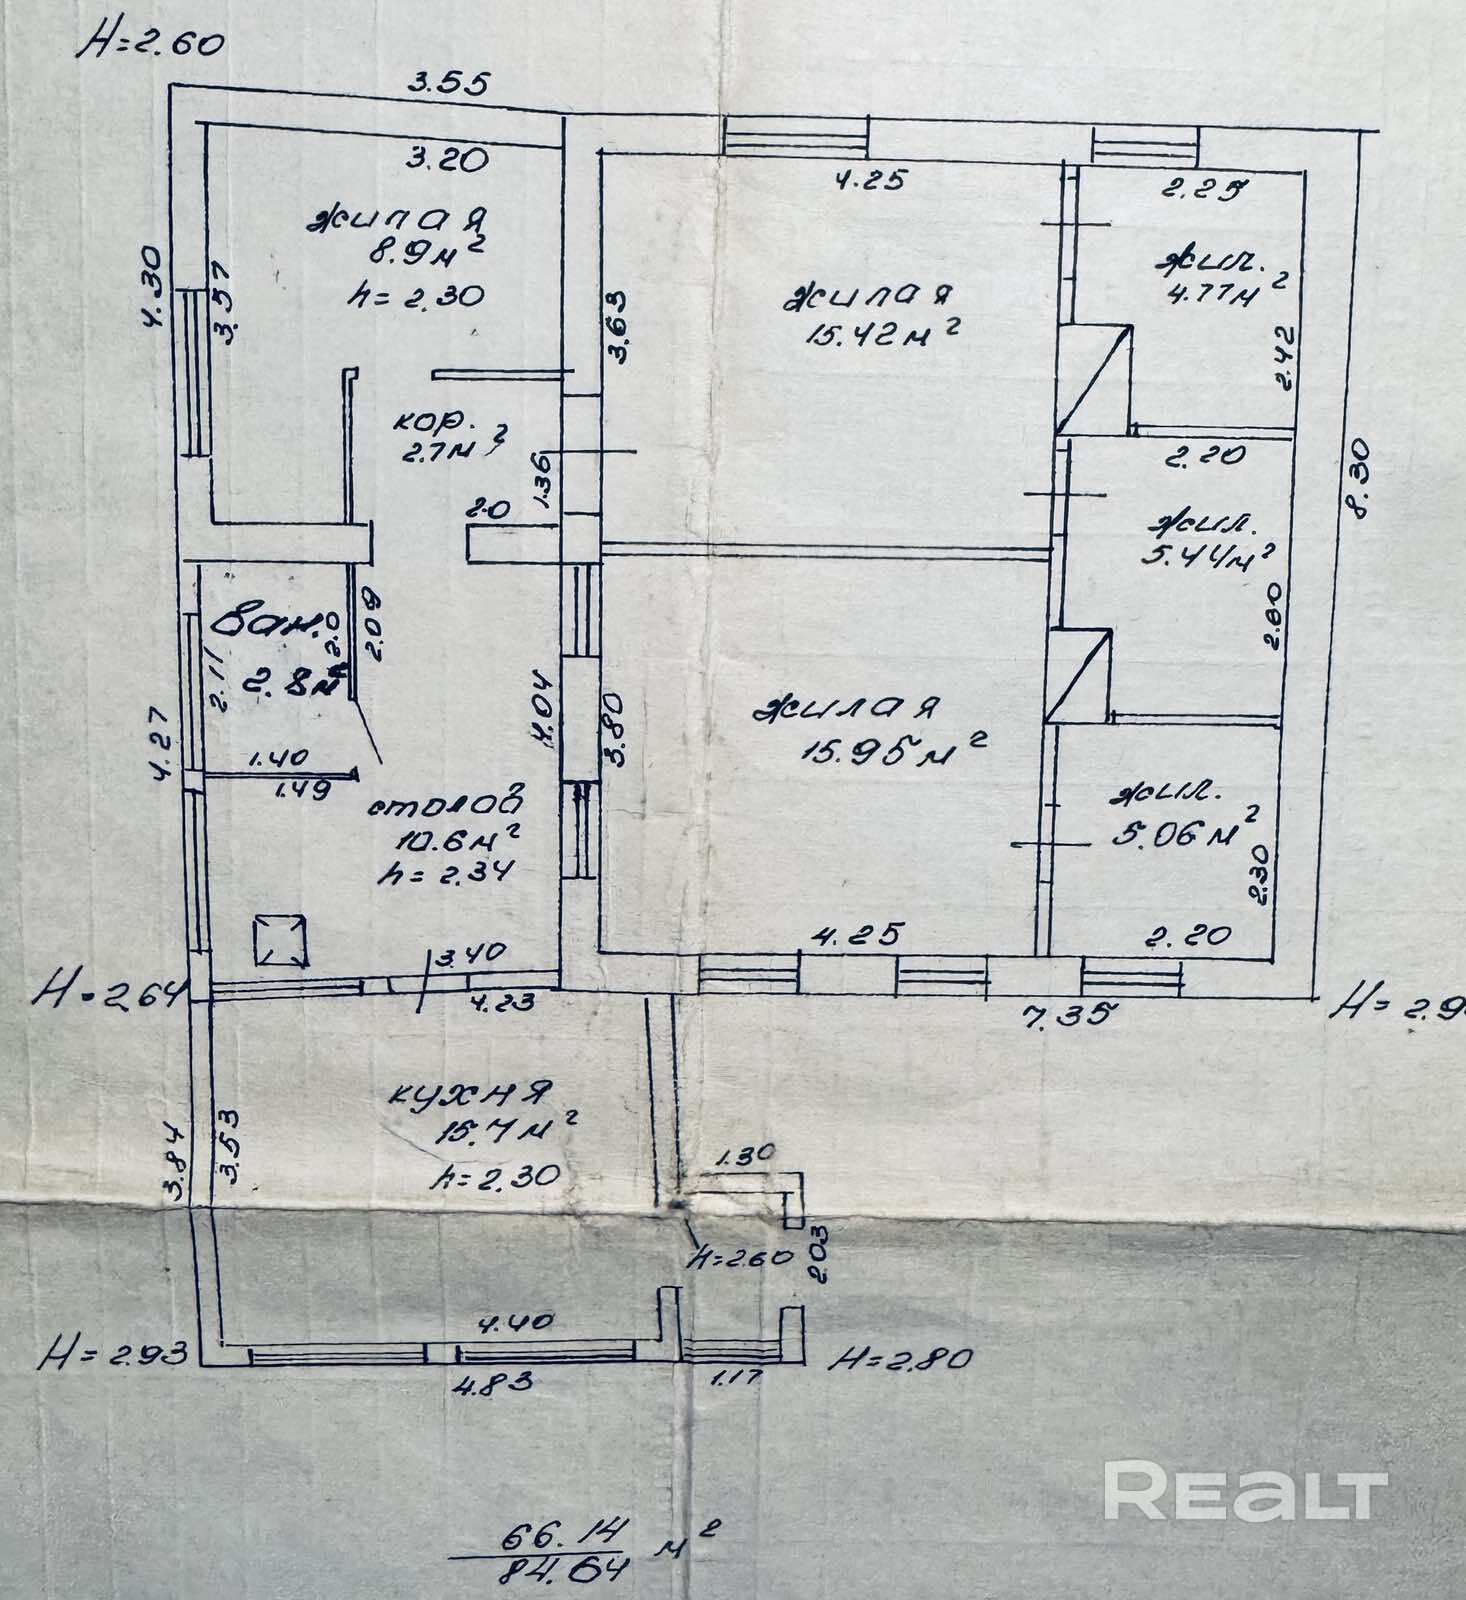 H=2.60
3.55
3.20
жилая
8.9 м²
h=2.30
4.30
3.57
4.25
2.25
жилая
15.42 м²
3.63
жил.
4.77 м²
2.42
кор.
2.7 м²
1.36
2.0
2.20
8.30
жил.
5.44 м²
2.60
Ван.
2.8 м²
2.0
2.09
2.11
4.27
1.40
1.49
4.04
3.80
жилая
15.95 м²
столов
10.6 м²
h=2.34
жил.
5.06 м²
2.30
4.25
2.20
3.40
4.23
H=2.64
7.35
кухня
15.7 м²
h=2.30
3.84
3.53
1.30
H=2.60
2.03
4.40
H=2.93
4.83
1.17
H=2.80
REALT
66.14
84.64 м²